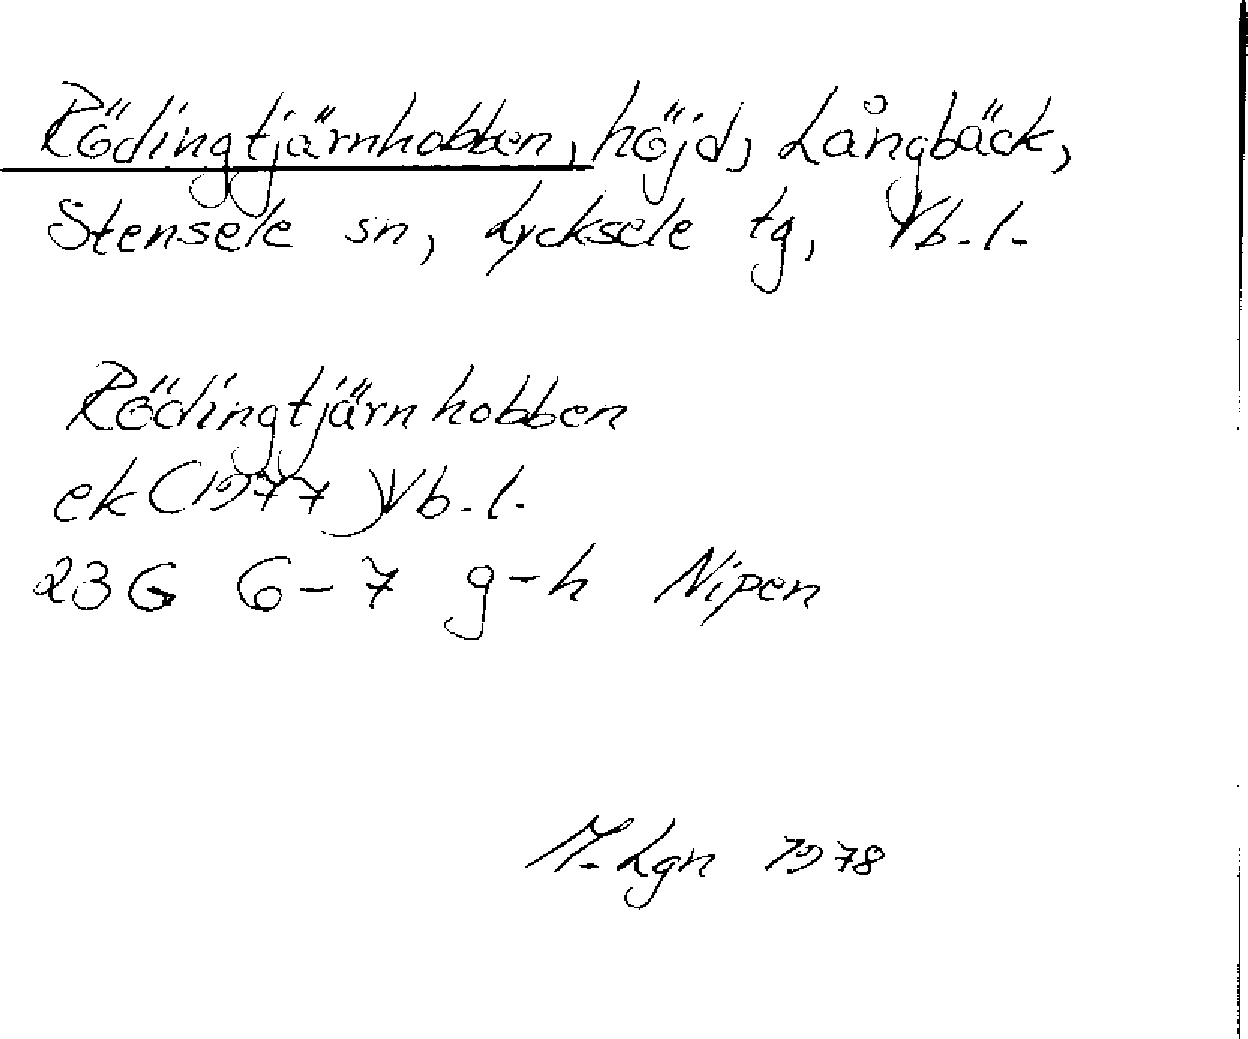 Rödingtjärnhobben, höjd, Långbäck,
Stensele sn, Lycksele tg, Vb.l.
Rödingtjärnhobben
ek (1977) Vb.l.
23G 6-7 g-h Nipen
M.Lgn 1978